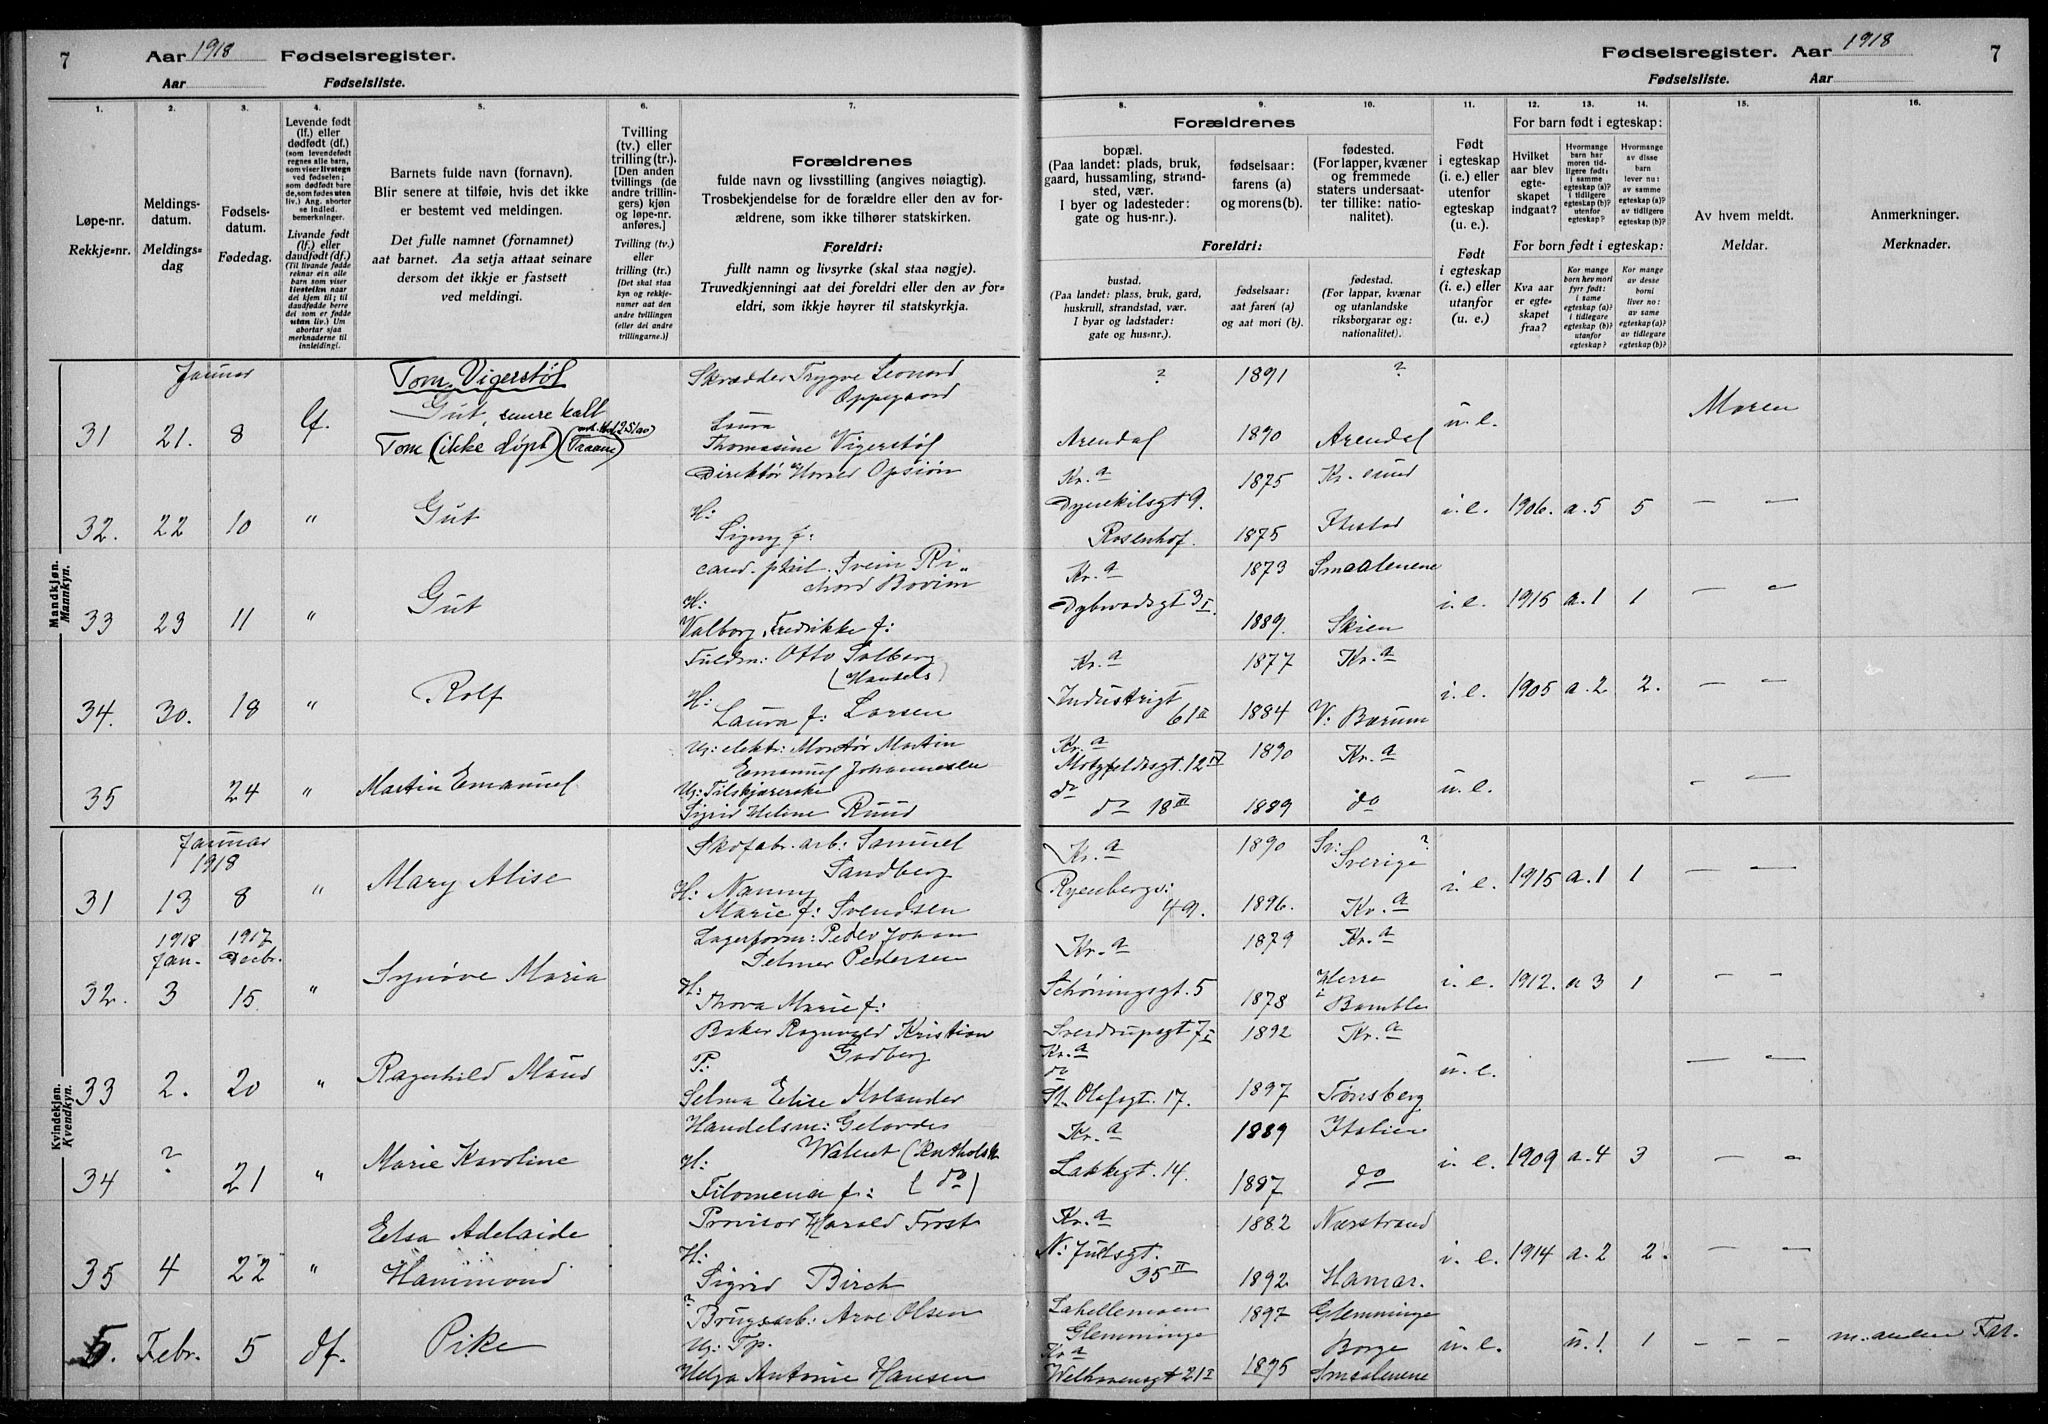 7 Aar 1918 Fødselsregister.
Aar Fødselsliste.
Fødselsregister. Aar 1918 7
Fødselsliste. Aar
1. 2. 3. 4. 5. 6. 7. 8. 9. 10. 11. 12. 13. 14. 15. 16.
Løpe-nr.
Rekkje-nr.
Meldings-
datum.
Meldings-
dag
Fødsels-
datum.
Fødedag.
Levende født
(lf.) eller
dødfødt (df.)
(som levendefødt
regnes alle barn,
som viser livstegn
ved fødselen;
som dødfødt bare
de, som fødes uten
liv.) Ang. aborter
se indled.
bemerkninger.
Livande født
(lf.) eller
daudfødt (df.)
(Til livande fødde
reknar ein alle
barn som viser
livsteikn naar
dei kjem til; til
daudfødde berre
dei som er fødde
utan liv.) Um
abortar sjaa
merknaderne til
innleidingi.
Barnets fulde navn (fornavn).
Blir senere at tilføie, hvis det ikke
er bestemt ved meldingen.
Det fulle namnet (fornamnet)
aat barnet. Aa setja attaat seinare
dersom det ikkje er fastsett
ved meldingi.
Tvilling
(tv.) eller
trilling (tr.).
[Den anden
tvillings (de
andre trillin-
gers) kjøn
og løpe-nr.
anføres.]
Tvilling (tv.)
eller
trilling (tr.)
[Det skal staa
kyn og rekkje-
numer aat den
andre tvillingen
(eller dei andre
trillingarne.)]
Forældrenes
fulde navn og livsstilling (angives nøiagtig).
Trosbekjendelse for de forældre eller den av for-
ældrene, som ikke tilhører statskirken.
Foreldri:
fullt namn og livsyrke (skal staa nøgje).
Truvedkjenningi aat dei foreldri eller den av for-
eldri, som ikkje høyrer til statskyrkja.
Forældrenes
bopæl.
(Paa landet: plads, bruk,
gaard, hussamling, strand-
sted, vær.
I byer og ladesteder:
gate og hus-nr.).
fødselsaar:
farens (a)
og morens (b).
fødested.
(For lapper, kvæner
og fremmede
staters undersaat-
ter tillike: natio-
nalitet).
Foreldri:
bustad.
(Paa landet: plass, bruk, gard,
huskrull, strandstad, vær.
I byar og ladstader:
gate og hus-nr.).
fødselsaar:
aat faren (a)
og aat mori (b).
fødestad.
(For lappar, kvænar
og utanlandske
riksborgarar og:
nationalitet).
Født
i egteskap
(i. e.) eller
utenfor
egteskap
(u. e.).
Født
i egteskap
(i. e.) eller
utanfor
(u. e.).
For barn født i egteskap:
Hvilket
aar blev
egte-
skapet
indgaat?
Hvormange
barn har
moren tid-
ligere født:
i samme
egteskap (a)?
i tidligere
egteskap (b)?
utenfor
egteskap?
Hvormange
av disse
barn
lever nu:
av samme
egteskap (a)?
av tidligere
egteskap (b)?
For born født i egteskap:
Kva aar
er egte-
skapet
fraa?
Kor mange
born hev mori
fyrr født:
i same
egteskap (a)?
i tidlegare
egteskap (b)?
utanfor
egteskap?
Kor mange
av desse
borni
liver no:
av same
egteskap (a)?
av tidlegare
egteskap (b)?
Av hvem meldt.
Meldar.
Anmerkninger.
Merknader.
Mandkjøn.
Mannkyn.
Januar Tom Vigerstøl Skrædder Trygve Leonard Oppegaard ? 1891 ?
31 21. 8 lf. Gut, senere kalt Laura u. e. Moren
Tom (ikke døpt) (Traane) Thomasine Vigerstøl Arendal 1890 Arendal
Direktør Harald Opsiøn Kr.a 1875 Kr. sund
32. 22 10 " Gut H: Dynekilsgt 9. i. e. 1906. a. 5 5 — —
Signy f: Rosenhof. 1875
cand. phil. Svein Ri- Kr.a 1873 Smaalenene
33 23 11 " Gut chard Bovim H: Dybwadsgt 3 I. i. e. 1915 a. 1 1 — "
Valborg Fredrikke f: 1889. Skien
Fuldm: Otto Solberg Kr.a 1877 Kr.a
34. 30. 18 " Rolf (Handels) H: Industrigt i. e. 1905 a. 2 2. — —
Laura f: Larsen 61 II 1884 V: Bærum
Ug: elektr: Montør Martin Kr.a 1890 Kr.a
35 24 " Martin Emanuel Emanuel Johannesen Motzfeldtsgt. 12 IV u. e. — —
Ug: Tilskjærerske do
Sigrid Helene Ruud do 18 III 1889 do
Kvindekjøn.
Kvendkyn.
Januar Skofabr. arb: Samuel Kr.a 1890 Sv: ?
1918 Sandberg Sverige
31 13 8 " Mary Alise H: Nanny Ryenbergv: i. e. 1915 a. 1 1 — —
Marie f: Svendsen 49. 1896. Kr.a
1918 1917 Lagerform: Peder Johan Kr.a 1879 Kr.a
Jan. Decbr. Selmer Pedersen
32. 3 15 " Synøve Maria H: Schøningsgt. 5 Herre i. e. 1912. a 3 1 — —
Thora Marie f: 1878 i Bamble
Baker Ragnvald Kristian Sverdrupsgt 7 I 1892 Kr.a
33 2. 20 " Ragnhild Maud Godberg Kr.a u. e. — —
P: do
Selma Elise Molander St. Olafsgt. 17. 1897 Tønsberg
Handelsm: Gelordes Kr.a 1889 Italien
34 ? 21 " Marie Karoline H: Lakkegt. 14. i. e. 1909 a. 4 3 — "
Filomena f: (do) 1887 do
Provisor Harald Frost Kr.a 1882 Nærstrand
35 4 22 " Elsa Adelaide H: N: Juelsgt. i. e. 1914 a. 2 2. — —
Hammond Sigrid Birch 35 II 1892 Hamar.
? Brugsarb: Arve Olsen Lahellemoen 1897 Glemminge
5. Febr. 5 df. Pike Ug: Tp. Glemminge Borge u. e. u. 1. 1 — — — m. anden Far.
Kr.a
Helga Antonie Hansen Welhavensgt 21 I 1895 Smaalenene